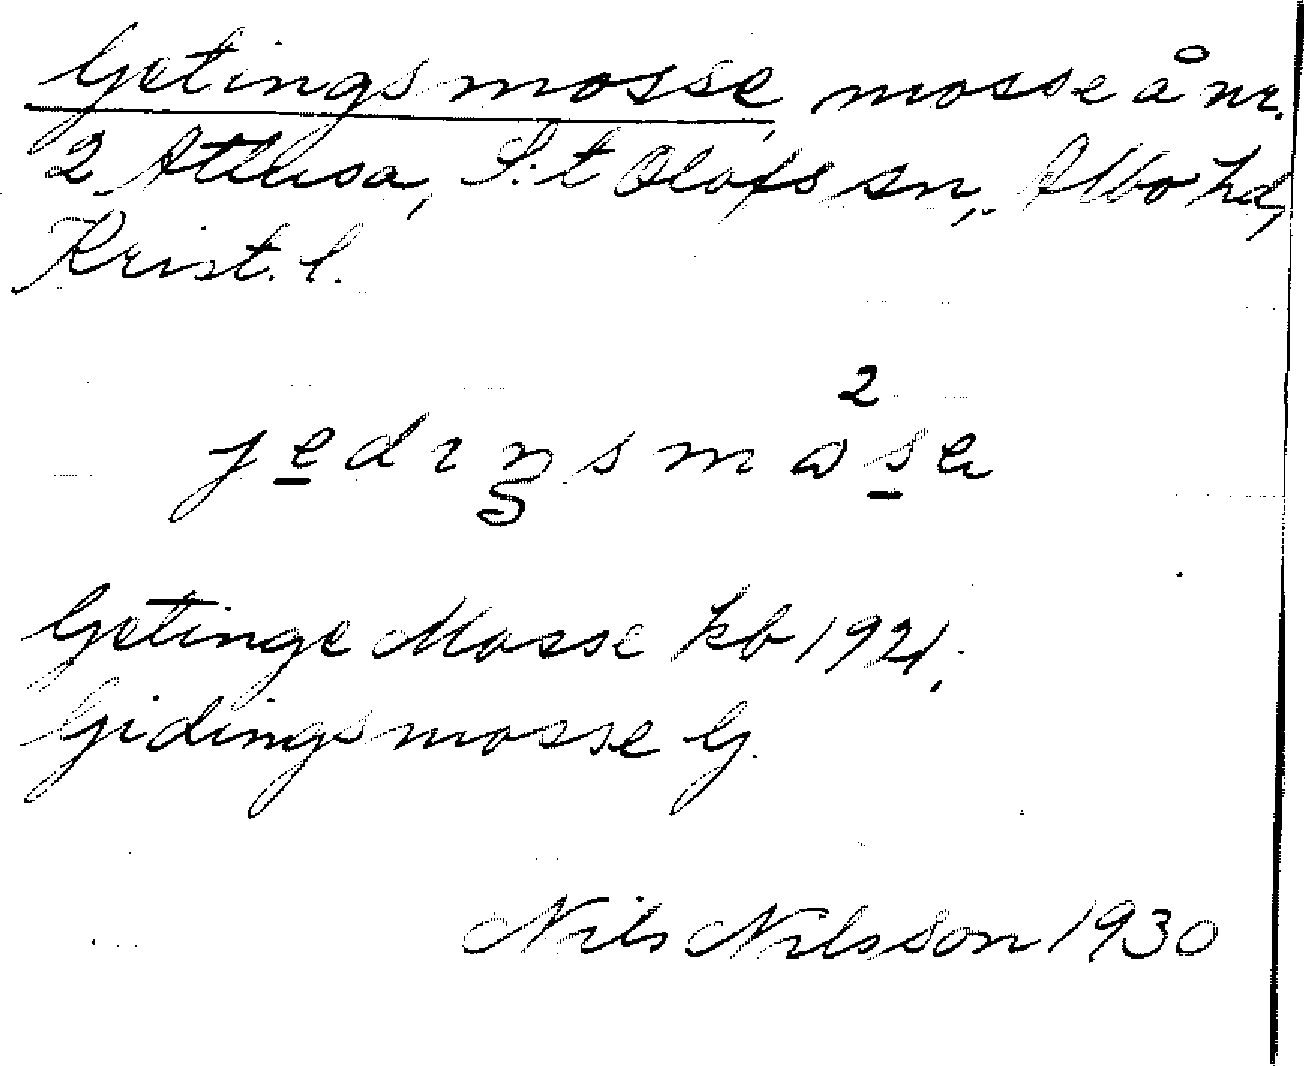 Getingsmosse, mosse å nr.
2 Attusa, S:t Olofs sn., Albo hd,
Krist. l.
2
jedıŋsmɷsɐ
Getinge Mosse kb 1921.
Gidingsmosse G.
Nils Nilsson 1930